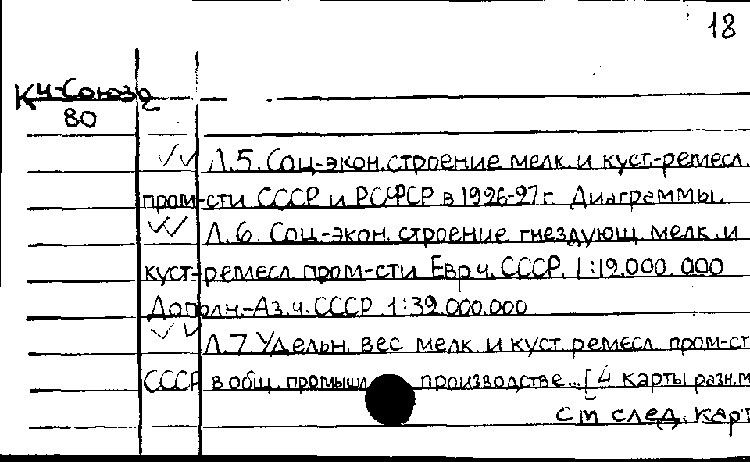 18
К Ч-Союза
80
Л.5. Соц-экон. строение мелк. и куст-ремесл.
пром-сти СССР и РСФСР в 1926-27 г. Диаграммы.
Л.6. Соц-экон. строение гнездующ. мелк. и
куст-ремесл. пром-сти Евр.ч. СССР. 1:19.000.000
Дополн-Аз.ч. СССР 1:39.000.000
Л.7 Удельн. вес мелк. и куст. ремесл. пром-ст
СССР в общ. промышл производстве... [4 карты разн. м
см след. карт